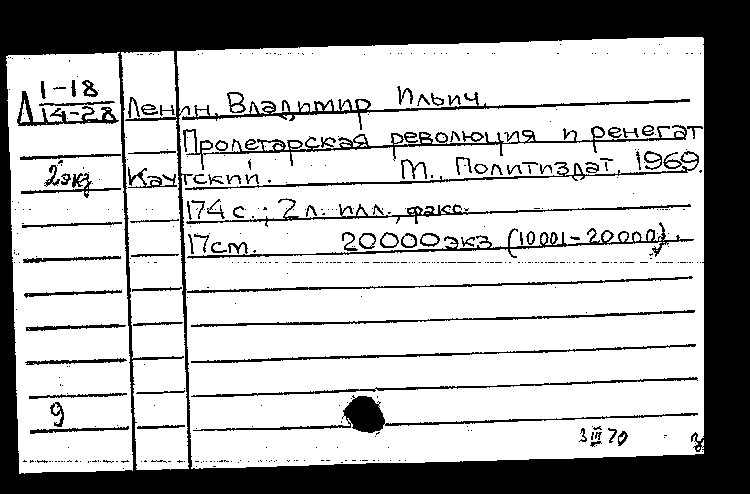 Д 1-18
14-28
Ленин, Владимир Ильич.
Пролетарская революция и ренегат
2 экз Каутский. М., Политиздат, 1969.
174 с.; 2 л. илл., факс.
17 см. 20000 экз (10001-20000).
9
3 III 70